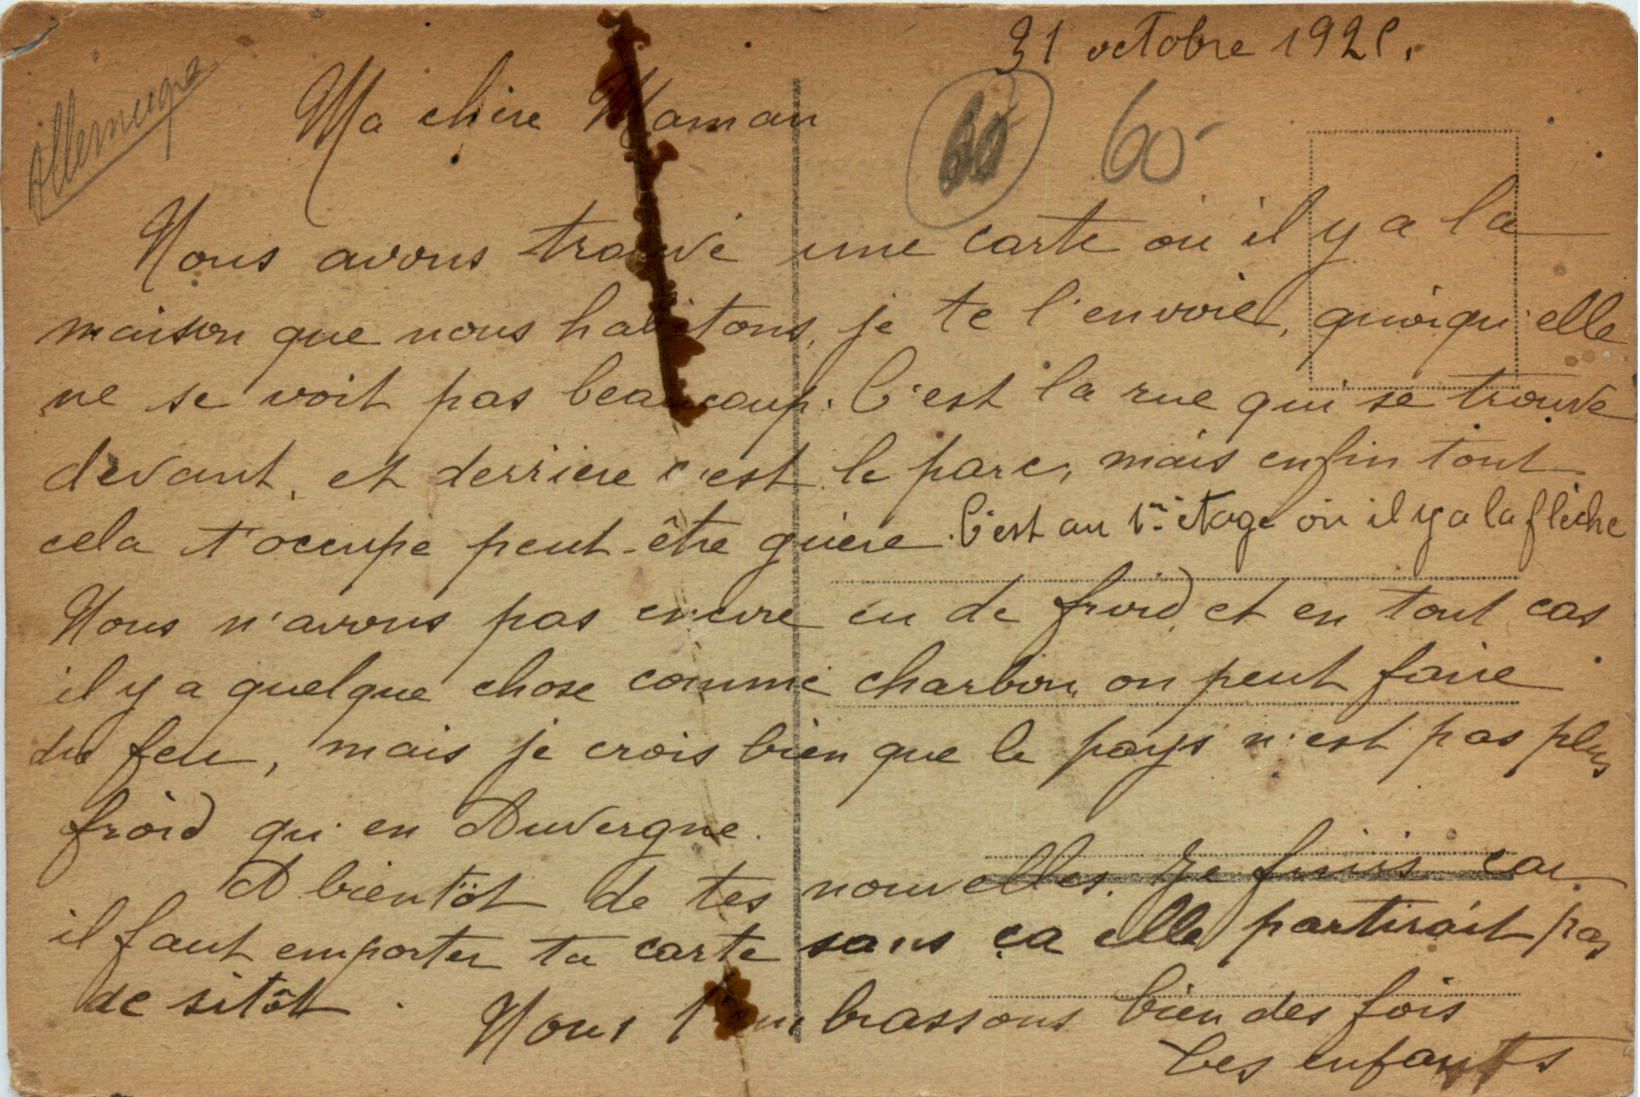 31 octobre 192
Allemagne
60 60
Ma chère Maman
Nous avons trouvé une carte où il y a la
maison que nous habitons, je te l'envoie, quoiqu'elle
ne se voit pas beaucoup. C'est la rue qui se trouve
devant, et derriere c'est le parc, mais enfin tout
cela t'occupe peut-être guère. C'est au 1er étage où il y a la flèche
Nous n'avons pas encore eu de froid et en tout cas
il y a quelque chose comme charbon, on peut faire
du feu, mais je crois bien que le pays n'est pas plus
froid qu'en Auvergne.
A bientôt de tes nouvelles. Je finis car
il faut emporter ta carte sans ça elle partirait pas
de sitôt. Nous t'embrassons bien des fois
Tes enfants